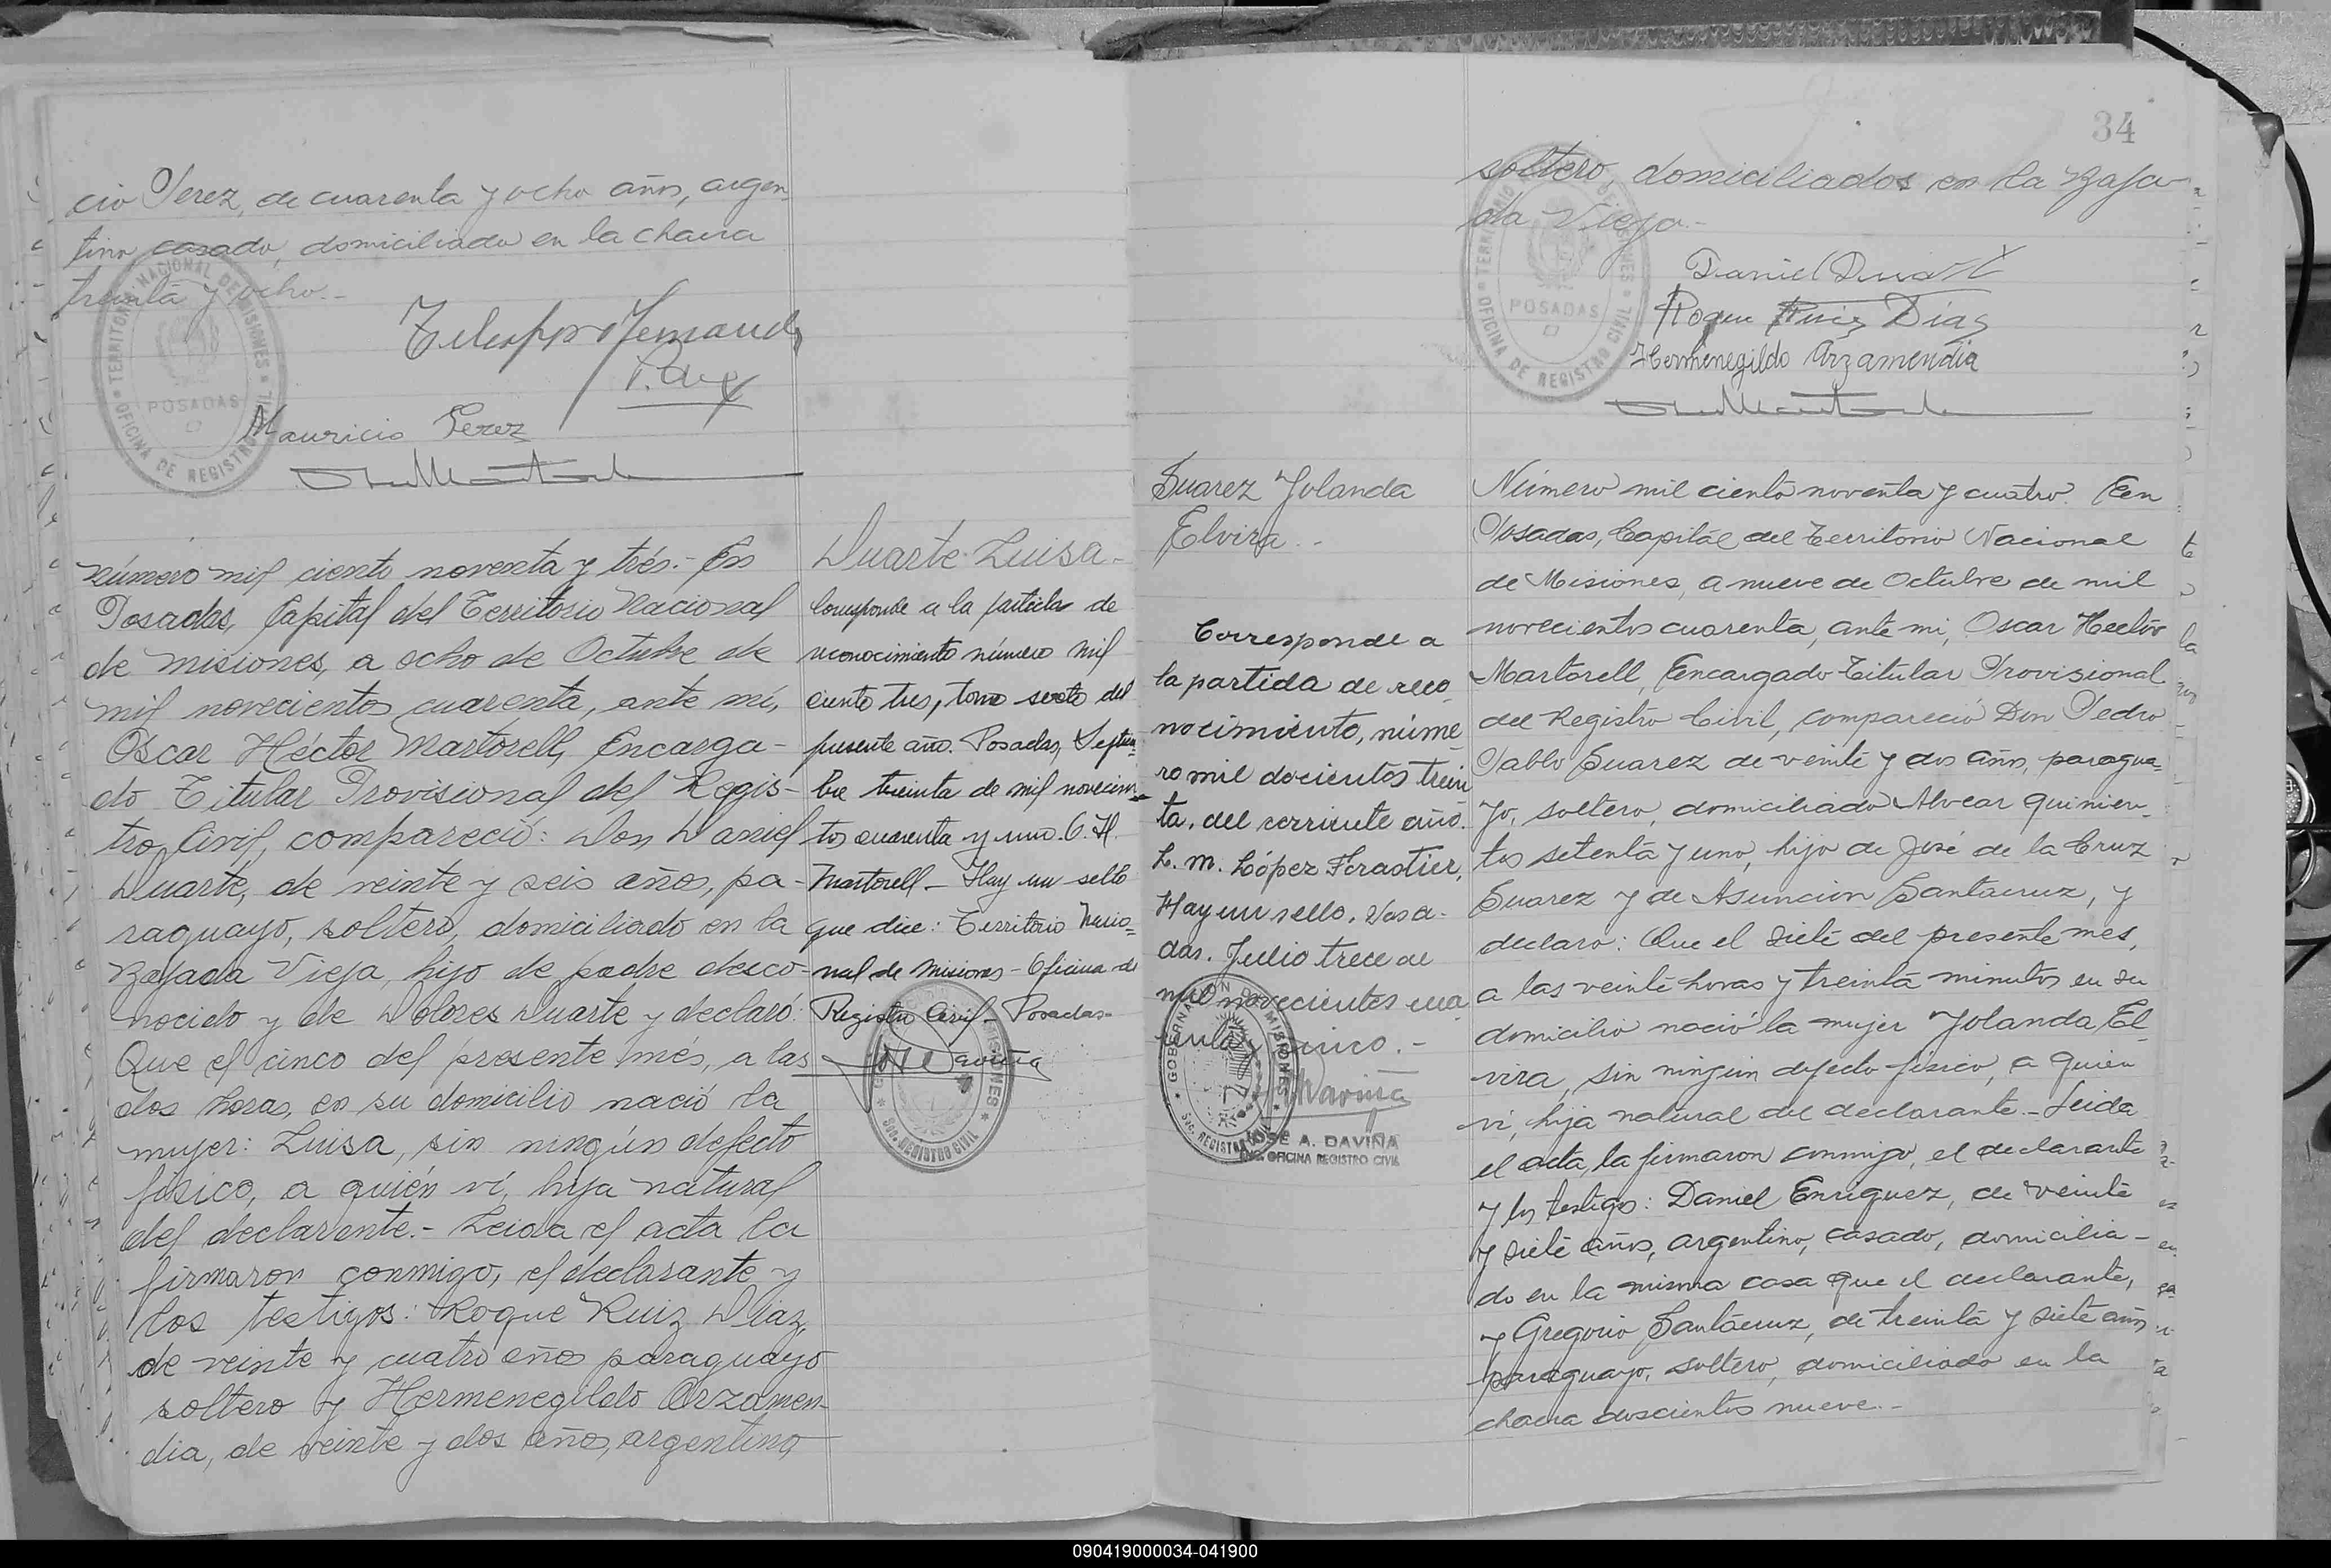 cio Perez, de cuarenta y ocho años, argen
tino, casado, domiciliado en la chacra
treinta y ocho.-
Mauricio Perez
TERRITORIO NACIONAL DE MISIONES
POSADAS
OFICINA DE REGISTRO CIVIL
número mil ciento noventa y trés.- En
Posadas, Capital del Territorio Nacional
de Misiones, a ocho de Octubre de
mil novecientos cuarenta, ante mí,
Oscar Héctor Martorell, Encarga-
do Titular Provisional del Regis-
tro Civil, compareció: Don Daniel
Duarte, de veinte y seis años, pa-
raguayo, soltero, domiciliado en la
Bajada Vieja, hijo de padre desco-
nocido y de Dolores Duarte y declaró:
Que el cinco del presente més, a las
dos horas, en su domicilio nació la
mujer: Luisa, sin ningún defecto
físico, a quién ví, hija natural
del declarente.- Leida el acta la
firmaron conmigo, el declarante y
los testigos: Roque Ruiz Diaz,
de veinte y cuatro años paraguayo
soltero y Hermenegildo Arzamen-
dia, de veinte y dos años, argentino,
Duarte Luisa-
Corresponde a la partida de
reconocimiento número mil
ciento tres, tomo sexto del
presente año. Posadas, Septiem
bre treinta de mil novecien
tos cuarenta y uno. O. H.
Martorell - Hay un sello
que dice: Territorio Nacio=
nal de Misiones - Oficina de
Registro Civil - Posadas-
34
soltero, domiciliados en la Baja
da Vieja.-
Daniel Duarte
Roque Ruiz Diaz
Hermenegildo Arzamendia
TERRITORIO MISIONES
POSADAS
OFICINA DE REGISTRO CIVIL
Suarez Yolanda
Elvira.-
Corresponde a
la partida de reco
nocimiento, núme
ro mil docientos trein
ta, del corriente año.
L. M. López Forastier,
Hay un sello. Posa-
das. Julio trece de
mil novecientos cua
renta y cinco.-
GOBERNACION DE MISIONES
Sec. REGISTRO CIVIL
JOSE A. DAVIÑA
ENC. OFICINA REGISTRO CIVIL
Número mil ciento noventa y cuatro. En
Posadas, Capital del Territorio Nacional
de Misiones, a nueve de Octubre de mil
novecientos cuarenta, ante mi, Oscar Hector
Martorell, Encargado Titular Provisional
del Registro Civil, compareció Don Pedro
Pablo Suarez de veinte y dos años, paragua-
yo, soltero, domiciliado Alvear quinien-
tos setenta y uno, hijo de José de la Cruz
Suarez y de Asuncion Santacruz, y
declaro: Que el siete del presente mes,
a las veinte horas y treinta minutos en su
domicilio nació la mujer Yolanda El-
vira, sin ningun defecto físico, a quien
vi, hija natural del declarante.- Leida
el acta, la firmaron conmigo, el declarante
y los testigos: Daniel Enriguez, de veinte
y siete años, argentino, casado, domicilia-
do en la misma casa que el declarante,
y Gregorio Santacruz, de treinta y siete años
paraguayo, soltero, domiciliado en la
chacra doscientos nueve.-
090419000034-041900